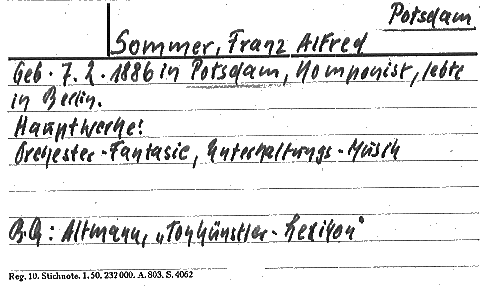 Potsdam
Sommer, Franz Alfred
Geb. 7.2.1886 in Potsdam, Komponist, lebte
in Berlin.
Hauptwerke:
Orchester-Fantasie, Unterhaltungs-Musik
B.Q: Altmann, „Tonkünstler-Lexikon"
Reg. 10. Stichnote. 1. 50. 232000. A. 803. S. 4062